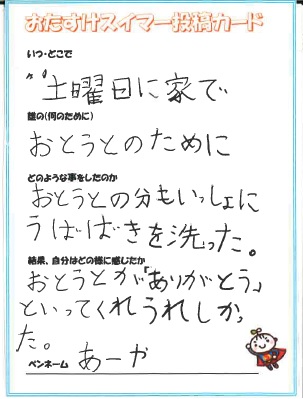 おたすけスイマー投稿カード
いつ・どこで
土曜日に家で
誰の(何のために)
おとうとのために
どのような事をしたのか
おとうとの分もいっしょに
うばばきを洗った。
結果、自分はどの様に感じたか
おとうとが「ありがとう」
といってくれうれしかっ
た。
ペンネーム あーや